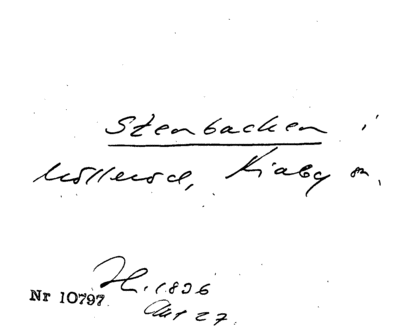 Stenbacken i
Mölleröd, Kiaby sn.
H. 1836
Nr 10797
Aug 27.